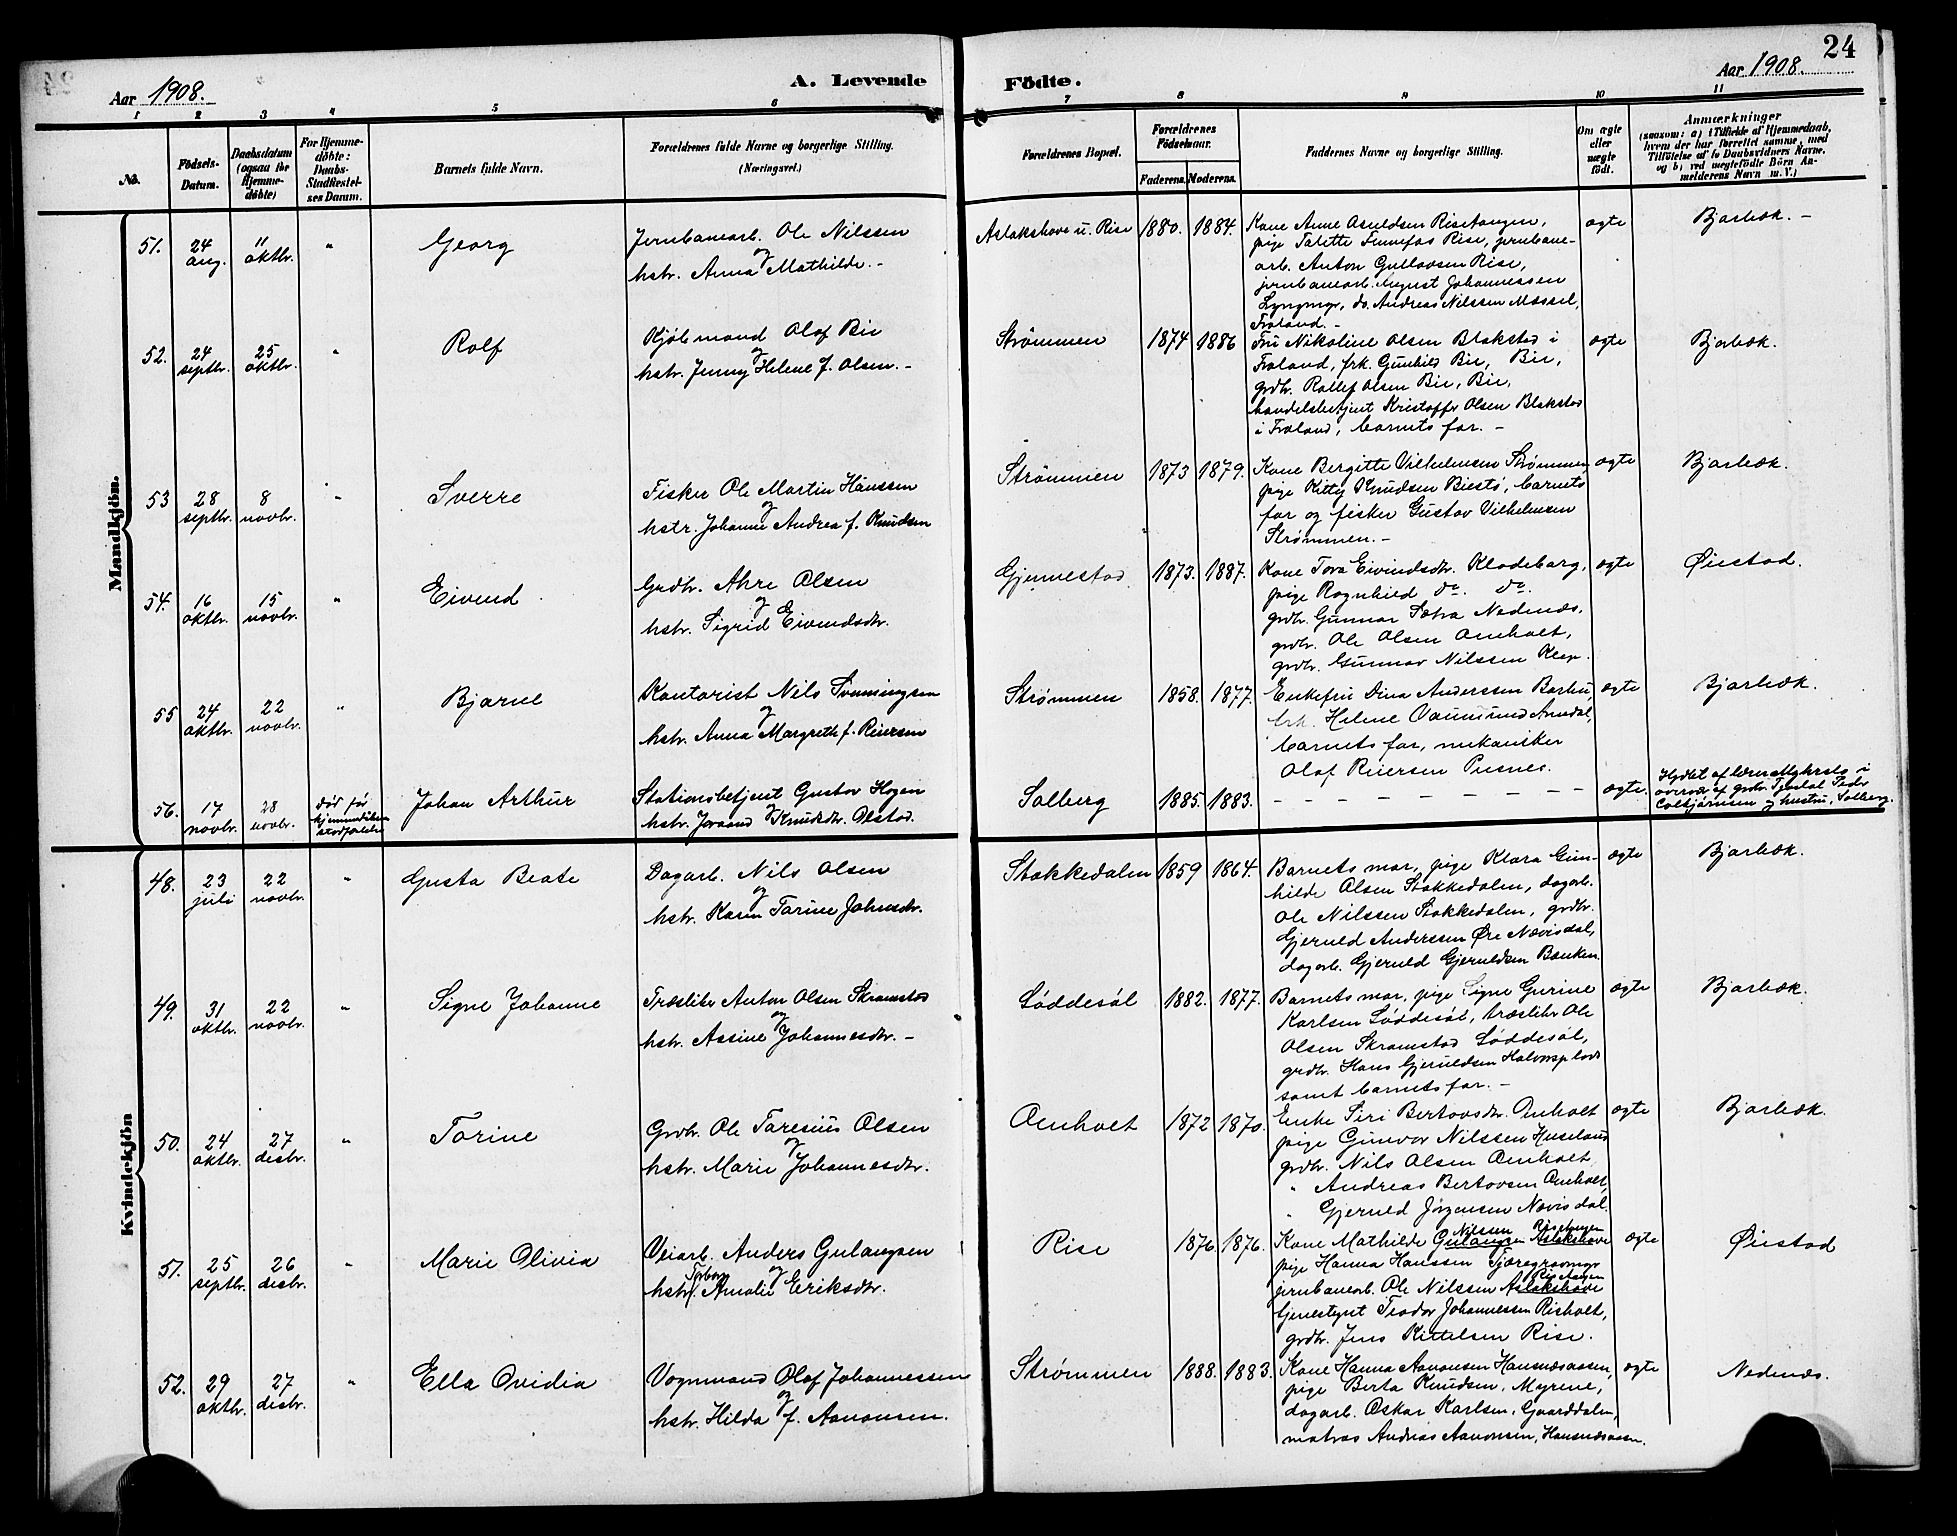 24
Aar 1908.
A. Levende
Födte.
Aar 1908.
1 2 3 4 5 6 7 8 9 10 11
No.
Födsels-
Datum.
Daabsdatum
(ogsaa for
Hjemme-
döbte)
For Hjemme-
döbte:
Daabs-
Stadfæstel-
ses Datum.
Barnets fulde Navn.
Forældrenes fulde Navne og borgerlige Stilling.
(Næringsvei.)
Forældrenes Bopæl.
Forældrenes
Födselsaar.
Faderens. Moderens.
Faddernes Navne og borgerlige Stilling.
Om ægte
eller
uægte
födt.
Anmærkninger
(saasom: a) i Tilfælde af Hjemmedaab,
hvem der har forrettet samme, med
Tilföielse af to Daabsvidners Navne.
og b) ved uægtefödte Börn An-
melderens Navn m. V.)
Mandkjön.
51. 24 aug. 11 oktbr. " Georg
Jernbanearb. Ole Nilssen
og
hstr. Anna Mathilde. -
Aslakshove u. Rise 1880. 1884.
Kone Anne Asuldsen Risetangen,
pige Talette Rise, jernbane-
arb. Anton Gullovsen Rise,
jernbanearb. August Johannessen
Lyngmyr, do. Andreas Nilssen Messel,
Froland. -
ægte
Bjorbæk. -
52. 24 septbr. 25 oktbr. " Rolf
Kjöbmand Olaf Bie
og
hstr. Jenny Helene f. Olsen. -
Strømmen 1874 1886
Fru Nikoline Olsen Blakstad i
Froland, frk. Gunhild Bie, Bie,
grdbr. Rollef Olsen Bie, Bie,
handelsbetjent Kristoffer Olsen Blakstad
i Froland, barnets far. -
ægte
Bjorbæk.
53 28 septbr. 8 novbr. " Sverre
Fisker Ole Martin Hanssen
og
hstr. Johanne Andrea f. Knudsen
Strømmen 1873 1879.
Kone Bergitte Vilhelmsen Strømmen
pige Kitty Knudsen Biestø, barnets
far og fisker Gustav Vilhelmsen
Strømmen. -
ægte
Bjorbæk.
54. 16 oktbr. 15 novbr. " Eivind
Grdbr. Ahre Olsen
og
hstr. Sigrid Eivindsdtr.
Gjennestad 1873. 1887.
Kone Tora Eivindsdtr. Klodeborg,
pige Ragnhild do. do.
grdbr. Gunnar Sætra Nedenæs.
grdbr. Ole Olsen Omholt,
grdbr. Gunnar Nilssen Klep.
ægte
Øiestad.
55 24 oktbr. 22 novbr. " Bjarne
Kontorist Nils Svenningsen
og
hstr. Anna Margreth f. Reiersen
Strømmen 1858. 1877.
Enkefru Dina Anderssen Barbu,
frk. Helene Arendal,
barnets far, mekaniker
Olaf Reiersen Pusnes.
ægte
Bjorbæk.
56. 17 novbr. 28 novbr. død før hjemmedåben stadfæstedes Johan Arthur
Stationsbetjent Gustav Hogen
og
hstr. Knudsdtr. Olstad.
Solberg 1885. 1883.
- - - - - - - - - -
ægte.
Kvindekjön
48. 23 juli 22 novbr. " Gusta Beate
Dagarb. Nils Olsen
og
hstr. Karen Torine Johnsdtr.
Stokkedalen 1859 1864.
Barnets mor, pige Klara Gun-
hilde Olsen Stokkedalen, dagarb.
Ole Nilssen Stokkedalen, grdbr.
Gjeruld Anderssen Øre Nævisdal,
dagarb. Gjeruld Gjeruldsen Bouken.
ægte
Bjorbæk.
49. 31 oktbr. 22 novbr. " Signe Johanne
Træsliber Anton Olsen Skramstad
og
hstr. Assine Johannesdtr. -
Løddesøl 1882. 1877.
Barnets mor, pige Signe Gurine
Karlsen Løddesøl, træsliber Ole
Olsen Skramstad Løddesøl,
grdbr. Hans Gjeruldsen
samt barnets far. -
ægte
Bjorbæk.
50. 24 oktbr. 27 desbr. " Torine
Grdbr. Ole Taresius Olsen
og
hstr. Marie Johannesdtr.
Omholt 1872 1870.
Enke Siri Bertovsdtr. Omholt
pige Gunvor Nilssen Huseland
grdbr. Nils Olsen Omholt
" Andreas Bertovsen Omholt,
" Gjeruld Jørgensen Nævisdal.
ægte
Bjorbæk.
51. 25 septbr. 26 desbr. " Marie Olivia
Veiarb. Anders Gulangsen
Torborg og
hstr. Amalie Eriksdtr.
Rise 1876. 1876.
Nilssen Risetangen
Kone Mathilde Gulangsen Aslakshove
pige Hanna Hanssen Tjæregravmyr
Risetangen
jernbanearb. Ole Nilssen Aslakshove
tjenestegut Teodor Johannessen Risholt,
grdbr. Jens Kittelsen Rise.
ægte
Øiestad
52. 29 oktbr. 27 desbr. " Ella Ovidia
Vognmand Olaf Johannessen
og
hstr. Hilda f. Aanonsen.
Strømmen 1888. 1883.
Kone Hanna Aanonsen Hansnæsaasen,
pige Berta Knudsen, Myrene,
dagarb. Oskar Karlsen, Gaarddalen,
matros Andreas Aanonsen, Hansnæsaasen.
ægte
Nedenæs.